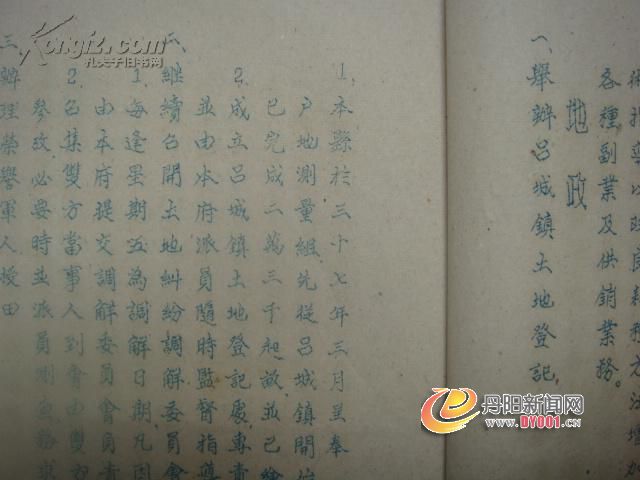 術指導以改良耕種方法增加
各種副業及供銷業務。
地政
一、舉辦呂城鎮土地登記
1.本縣於三十七年三月呈奉
戶地測量組先從呂城鎮開始
已完成二萬三千畝並已繪
2.成立呂城鎮土地登記處專責
並由本府派員隨時監督指導
二、繼續召開土地糾紛調解委員會
1.每逢星期五為調解日期凡因
由本府提交調解委員會負責
2.召集雙方當事人到會由雙方
參攷必要時並派員測量務求
三、辦理榮譽軍人授田
kongfz.com
孔夫子旧书网
丹阳新闻网
WWW.DY001.CN